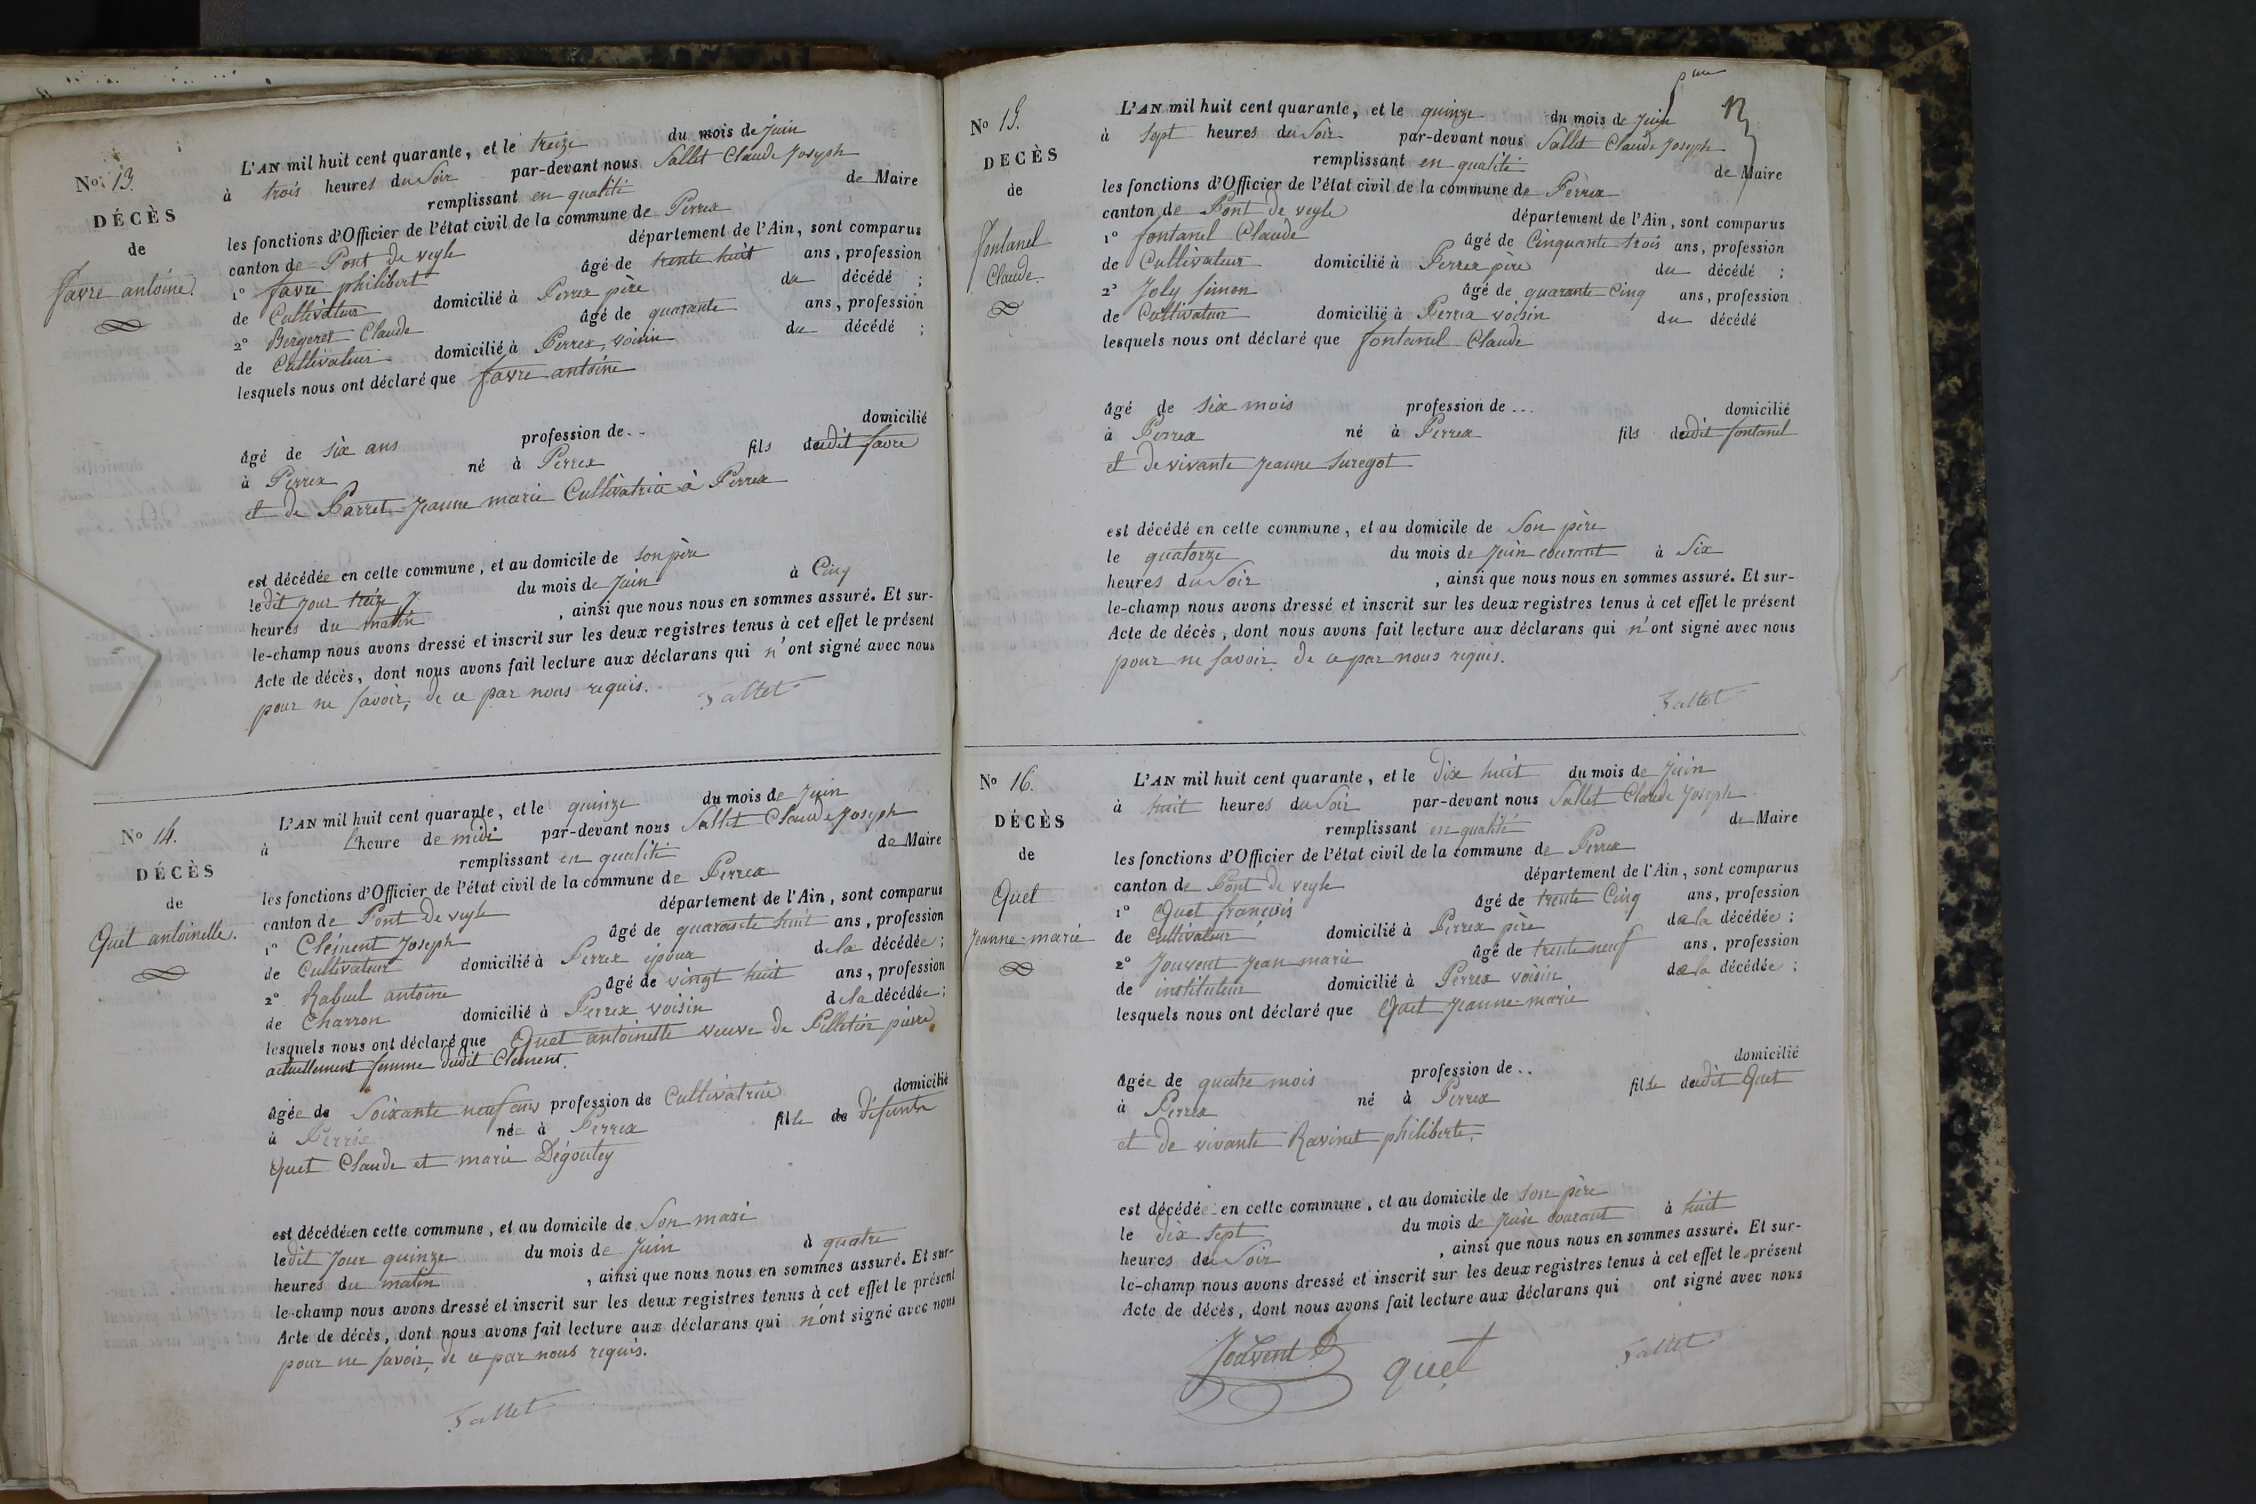 No 13.
DÉCÈS
de
favre antoine.
L'AN mil huit cent quarante, et le treize du mois de juin
à trois heures du Soir par-devant nous Sallet Claude Joseph
remplissant en qualité de Maire
les fonctions d'Officier de l'état civil de la commune de Perrex
canton de Pont de veyle département de l'Ain, sont comparus
1° favre philibert âgé de trente huit ans, profession
de Cultivateur domicilié à Perrex père du décédé ;
2° Bergeret Claude âgé de quarante ans, profession
de Cultivateur domicilié à Perrex, voisin du décédé ;
lesquels nous ont déclaré que favre antoine
âgé de six ans profession de .. domicilié
à Perrex né à Perrex fils dudit favre
et de Parret Jeanne marie Cultivatrice à Perrex
est décédée en cette commune, et au domicile de son père
ledit jour treize du mois de Juin à Cinq
heures du matin , ainsi que nous nous en sommes assuré. Et sur-
le-champ nous avons dressé et inscrit sur les deux registres tenus à cet effet le présent
Acte de décès, dont nous avons fait lecture aux déclarans qui n'ont signé avec nous
pour ne savoir, de ce par nous requis.
Sallet
No 14.
DÉCÈS
de
Quet antoinette.
L'AN mil huit cent quarante, et le quinze du mois de Juin
à l'heure de midi par-devant nous Sallet Claude Joseph
remplissant en qualité de Maire
les fonctions d'Officier de l'état civil de la commune de Perrex
canton de Pont de veyle département de l'Ain, sont comparus
1° Clément Joseph âgé de quarante huit ans, profession
de Cultivateur domicilié à Perrex époux de la décédée ;
2° Rabuel antoine âgé de vingt huit ans, profession
de Charron domicilié à Perrex voisin de la décédée ;
lesquels nous ont déclaré que Quet antoinette veuve de Pelletier pierre
actuellement femme dudit Clément.
âgée de Soixante neuf ans profession de Cultivatrice domicilié
à Perrex née à Perrex fille de défunts
Quet Claude et marie Dégoutey
est décédée en cette commune, et au domicile de Son mari
ledit Jour quinze du mois de Juin à quatre
heures du matin , ainsi que nous nous en sommes assuré. Et sur-
le-champ nous avons dressé et inscrit sur les deux registres tenus à cet effet le présent
Acte de décès, dont nous avons fait lecture aux déclarans qui n'ont signé avec nous
pour ne savoir, de ce par nous requis.
Sallet
No 15.
DECÈS
de
fontanel
Claude.
L'AN mil huit cent quarante, et le quinze du mois de Juin
à sept heures du Soir par-devant nous Sallet Claude Joseph
remplissant en qualité de Maire
les fonctions d'Officier de l'état civil de la commune de Perrex
canton de Pont de veyle département de l'Ain, sont comparus
1° fontanel Claude âgé de Cinquante trois ans, profession
de Cultivateur domicilié à Perrex père du décédé ;
2° Joly simon âgé de quarante Cinq ans, profession
de Cultivateur domicilié à Perrex voisin du décédé
lesquels nous ont déclaré que fontanel Claude
âgé de six mois profession de ... domicilié
à Perrex né à Perrex fils dudit fontanel
et de vivante Jeanne suregot
est décédé en cette commune, et au domicile de Son père
le quatorze du mois de Juin courant à Six
heures du Soir , ainsi que nous nous en sommes assuré. Et sur-
le-champ nous avons dressé et inscrit sur les deux registres tenus à cet effet le présent
Acte de décès, dont nous avons fait lecture aux déclarans qui n'ont signé avec nous
pour ne savoir. de ce par nous requis.
Sallet
No 16.
DÉCÈS
de
Quet
Jeanne-marie
L'AN mil huit cent quarante, et le dix huit du mois de Juin
à huit heures du Soir par-devant nous Sallet Claude Joseph
remplissant en qualité de Maire
les fonctions d'Officier de l'état civil de la commune de Perrex
canton de Pont de veyle département de l'Ain, sont comparus
1° Quet françois âgé de trente Cinq ans, profession
de Cultivateur domicilié à Perrex père de la décédée ;
2° Jouvent Jean marie âgé de trente neuf ans, profession
de instituteur domicilié à Perrex voisin de la décédée ;
lesquels nous ont déclaré que Quet Jeanne-marie
âgée de quatre mois profession de .. domicilié
à Perrex né à Perrex fille dudit Quet
et de vivante Ravinet philiberte.
est décédée en cette commune, et au domicile de son père
le dix sept du mois de Juin courant à huit
heures du Soir , ainsi que nous nous en sommes assuré. Et sur-
le-champ nous avons dressé et inscrit sur les deux registres tenus à cet effet le présent
Acte de décès, dont nous avons fait lecture aux déclarans qui ont signé avec nous
Jouvent quet Sallet